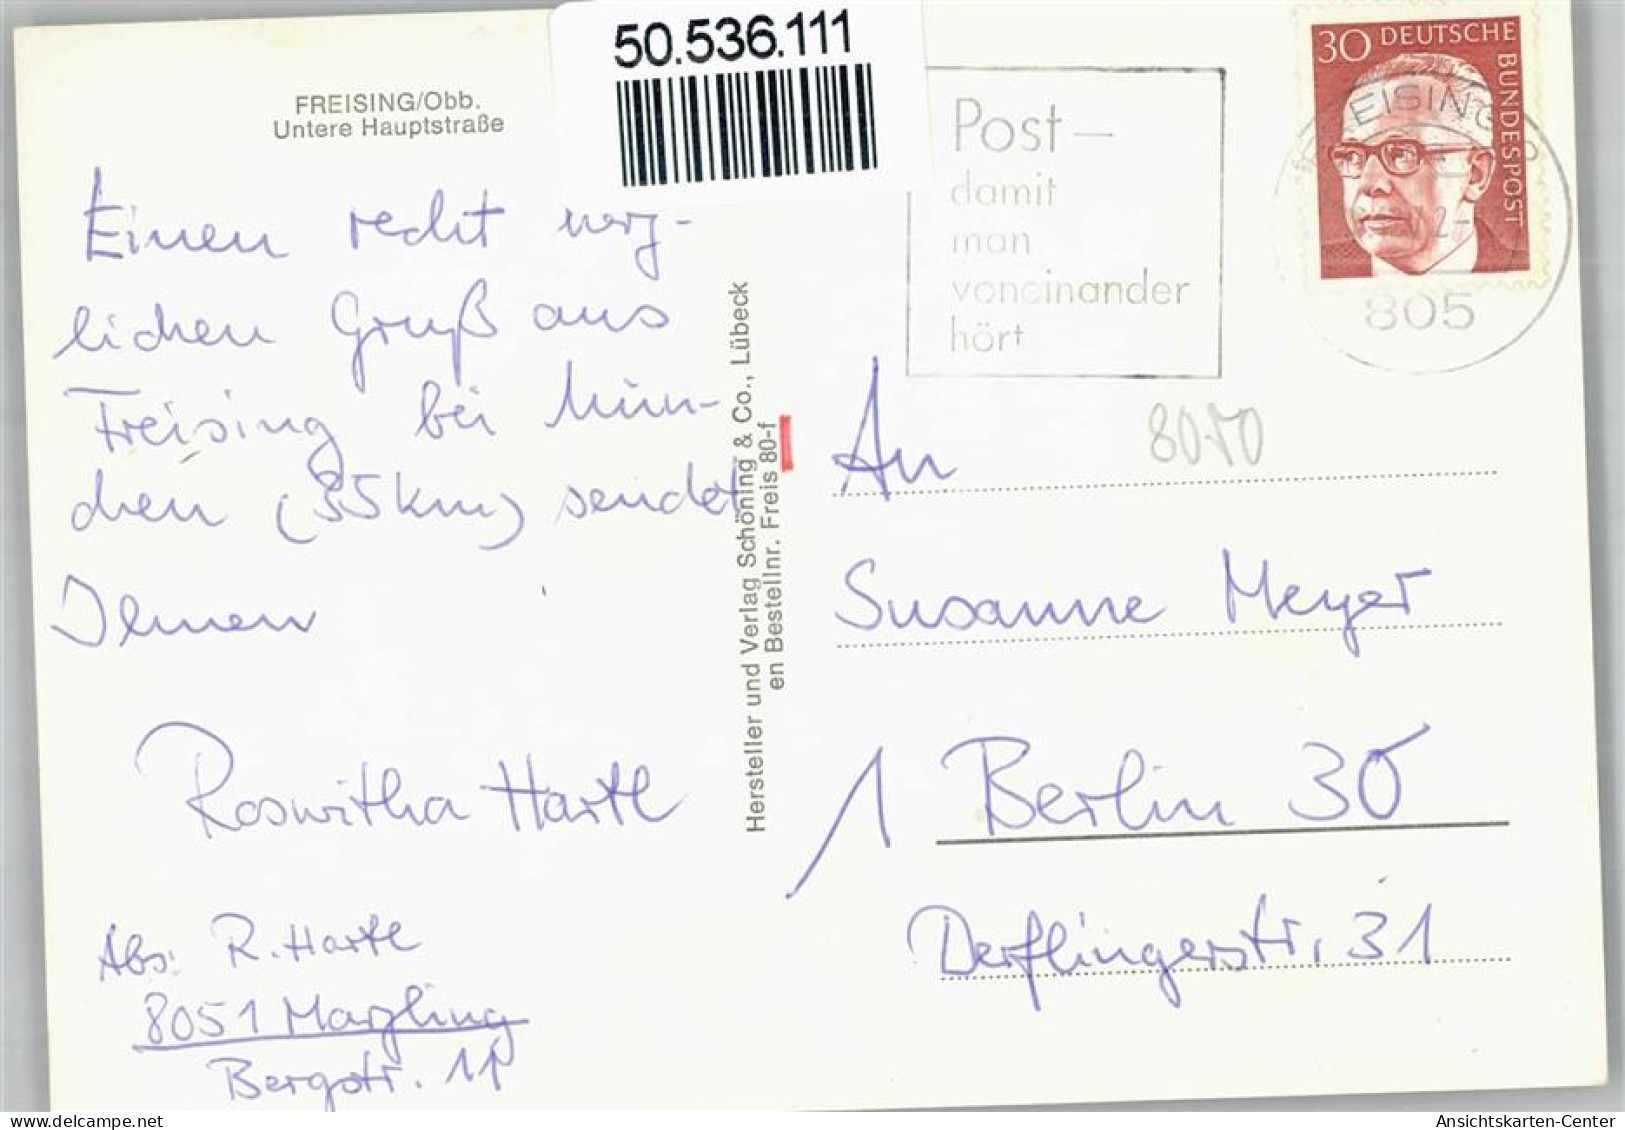 50.536.111
FREISING/Obb.
Untere Hauptstraße
Einen recht herz-
lichen Gruß aus
Freising bei Mün-
chen (35km) sendet
Ihnen
Roswitha Hartl
Abs: R. Hartl
8051 Marzling
Bergstr. 11
Hersteller und Verlag Schöning & Co., Lübeck
en Bestellnr. Freis 80-f
Post –
damit
man
voneinander
hört
30 DEUTSCHE
BUNDESPOST
EISING
805
8050
An
Susanne Meyer
1 Berlin 30
Derflingerstr. 31
Ansichtskarten-Center